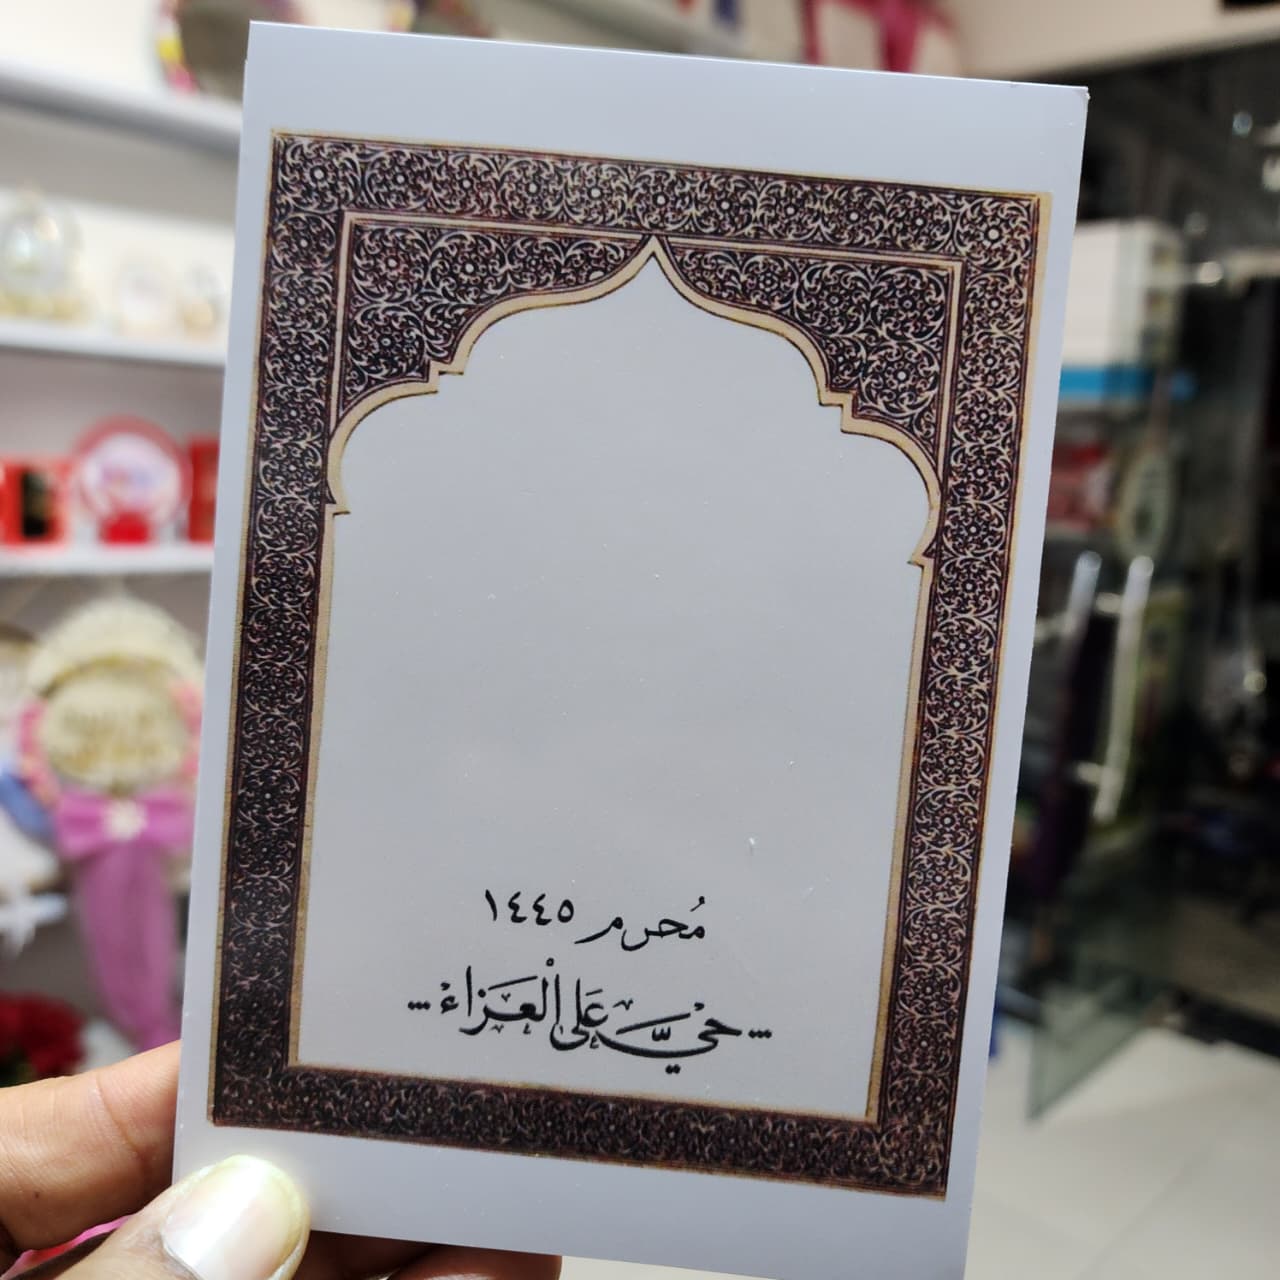 مُحرم ١٤٤٥
... حيَّ عَلى الْعَزاءْ ...